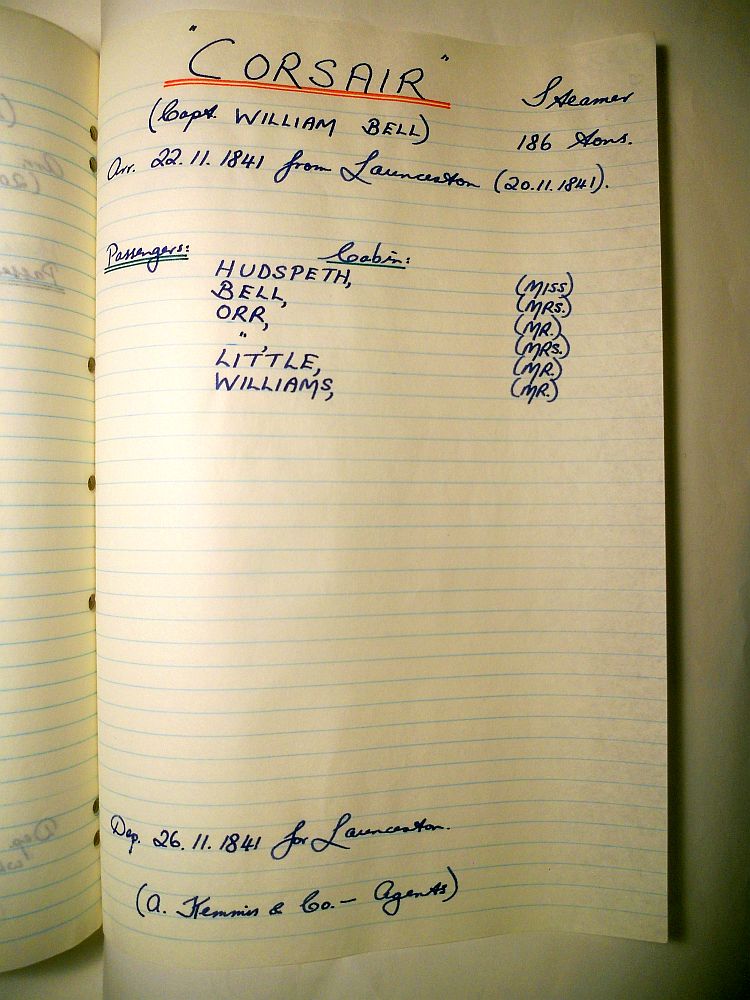 "CORSAIR"
Steamer
(Capt. WILLIAM BELL)
186 tons.
Arr. 22.11.1841 from Launceston (20.11.1841).
Passengers: Cabin:
HUDSPETH, (MISS)
BELL, (MRS.)
ORR, (MR.)
" , (MRS.)
LITTLE, (MR.)
WILLIAMS, (MR.)
Dep. 26.11.1841 for Launceston.
(A. Kemmis & Co. — Agents)